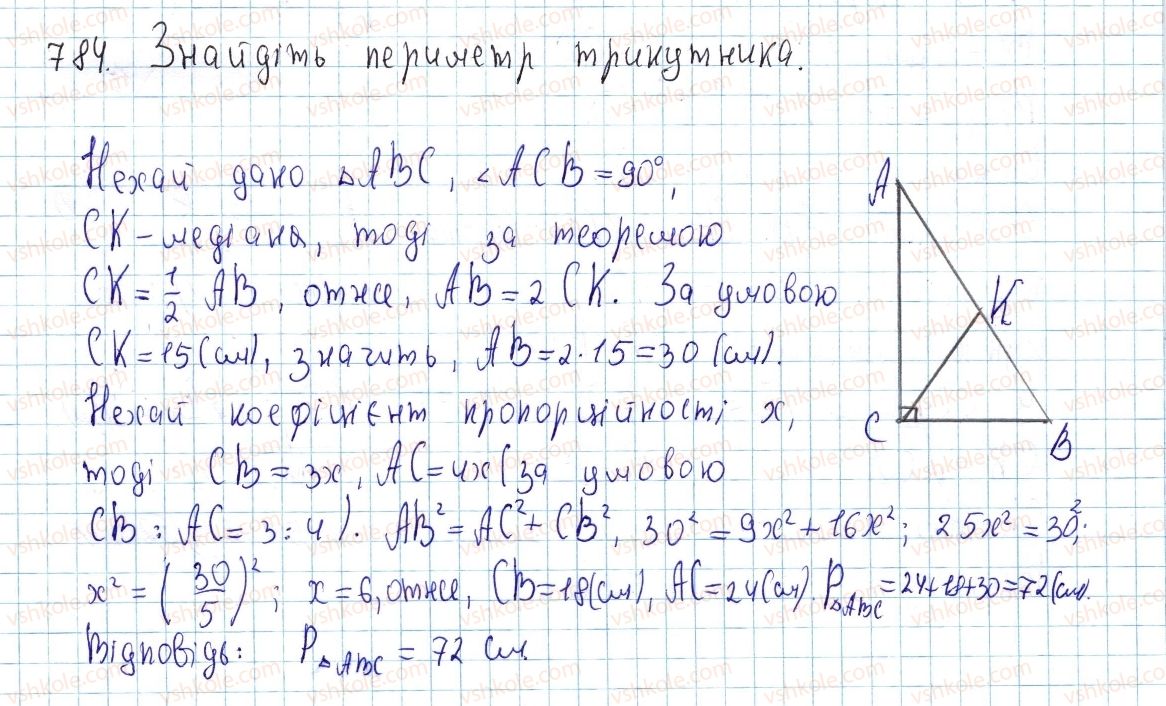 784. Знайдіть периметр трикутника.
Нехай дано △ABC, ∠ACB = 90°,
CK – медіана, тоді за теоремою
CK = 1/2 AB, отже, AB = 2 CK. За умовою
CK = 15 (см), значить, AB = 2 · 15 = 30 (см).
Нехай коефіцієнт пропорційності x,
тоді CB = 3x, AC = 4x (за умовою
CB : AC = 3 : 4). AB² = AC² + CB², 30² = 9x² + 16x²; 25x² = 30²;
x² = (30/5)²; x = 6, отже, CB = 18 (см), AC = 24 (см). P△ABC = 24 + 18 + 30 = 72 (см).
Відповідь: P△ABC = 72 см.
A
K
C
B
vshkole.com